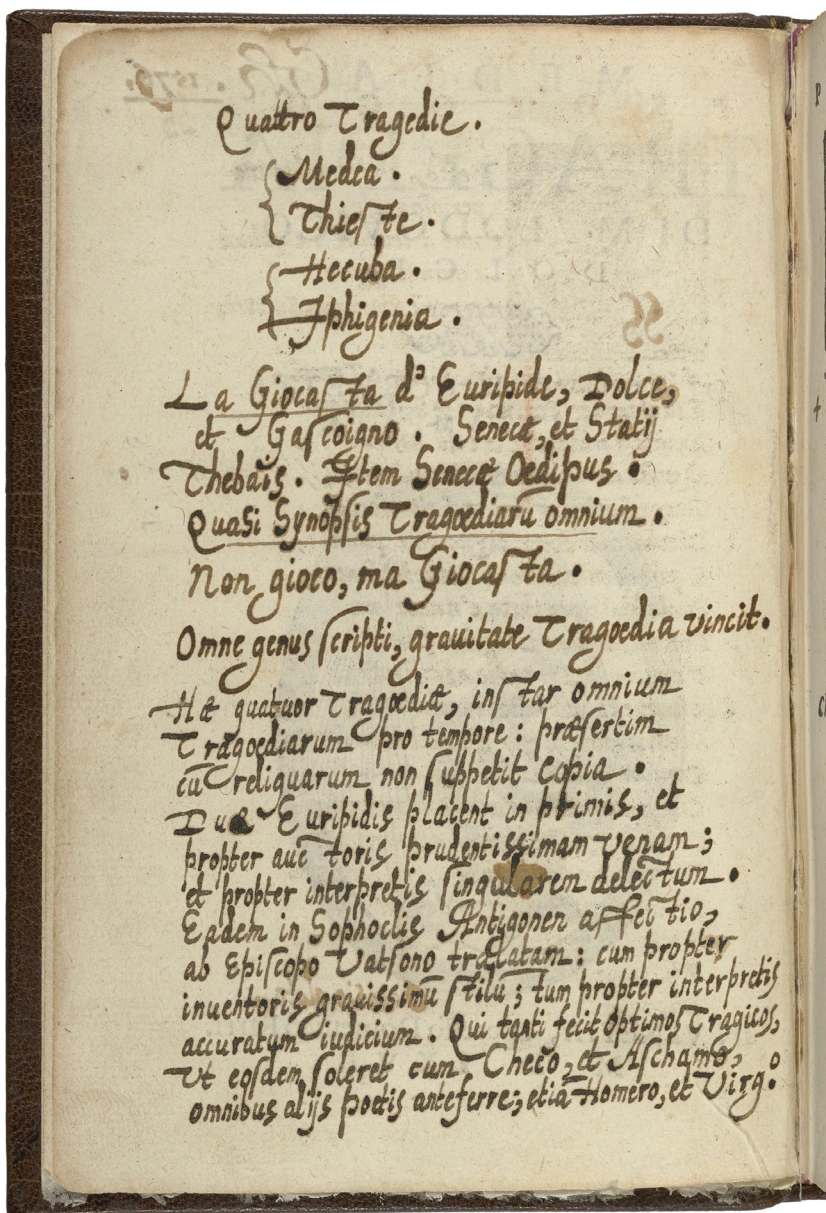 Quattro Tragedie.
Medea.
Thieste.
Hecuba.
Iphigenia.
La Giocasta d' Euripide, Dolce,
et Gascoigno. Senecæ, et Statij
Thebais. Item Senecæ Oedipus.
Quasi Synopsis Tragœdiarũ omnium.
Non gioco, ma Giocasta.
Omne genus scripti, grauitate Tragoedia vincit.
Hæ quatuor Tragœdiæ, instar omnium
Tragœdiarum pro tempore: præsertim
cũ reliquarum non suppetit copia.
Duæ Euripidis placent in primis, et
propter auctoris prudentissimam venam;
et propter interpretis singularem delectum.
Eadem in Sophoclis Antigonen affectio,
ab Episcopo Vatsono tralatam: cum propter
inventoris grauissimũ stilũ; tum propter interpretis
accuratum iudicium. Qui tanti fecit optimos Tragicos,
Vt eosdem soleret cum Checo, et Aschamo,
omnibus alijs poetis anteferre; etiã Homero, et Virg: